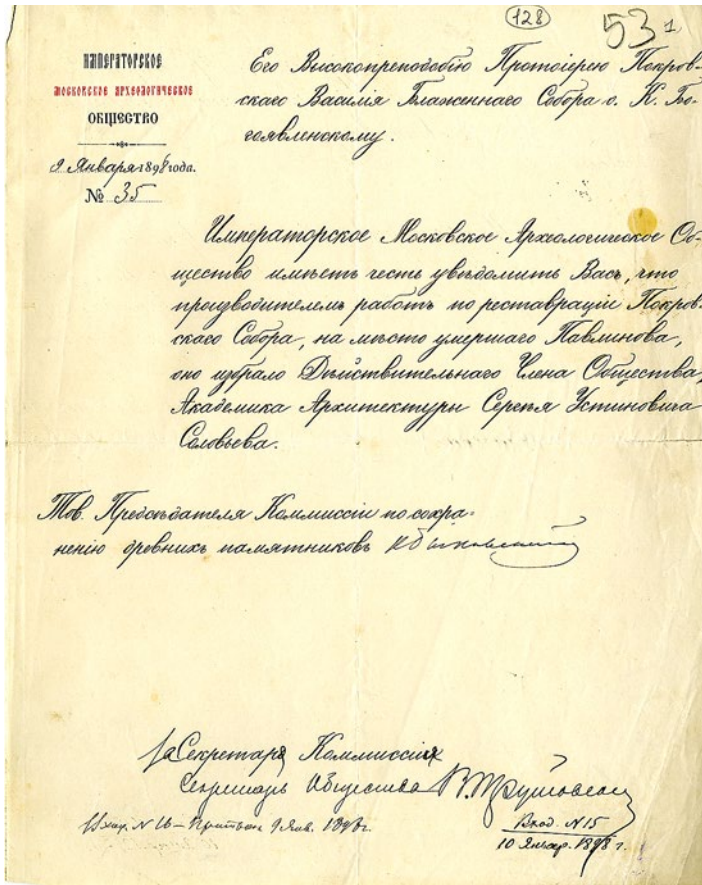 128
53 1
ИМПЕРАТОРСКОЕ
МОСКОВСКОЕ АРХЕОЛОГИЧЕСКОЕ
ОБЩЕСТВО
9 Января 1898 года.
№ 35
Его Высокопреподобію Протоіерею Покров-
скаго Василія Блаженнаго Собора о. К. Бо-
гоявленскому.
Императорское Московское Археологическое Об-
щество имѣетъ честь увѣдомить Васъ, что
производителемъ работъ по реставраціи Покров-
скаго Собора, на мѣсто умершаго Павлинова,
оно избрало Дѣйствительнаго Члена Общества,
Академика Архитектуры Сергѣя Устиновича
Соловьева.
Тов. Предсѣдателя Коммиссіи по сохра-
ненію древнихъ памятниковъ К Быковскій
за Секретаря Коммиссіи
Секретарь Общества В. Трутовскій
Вход. №15
10 Январ. 1898 г.